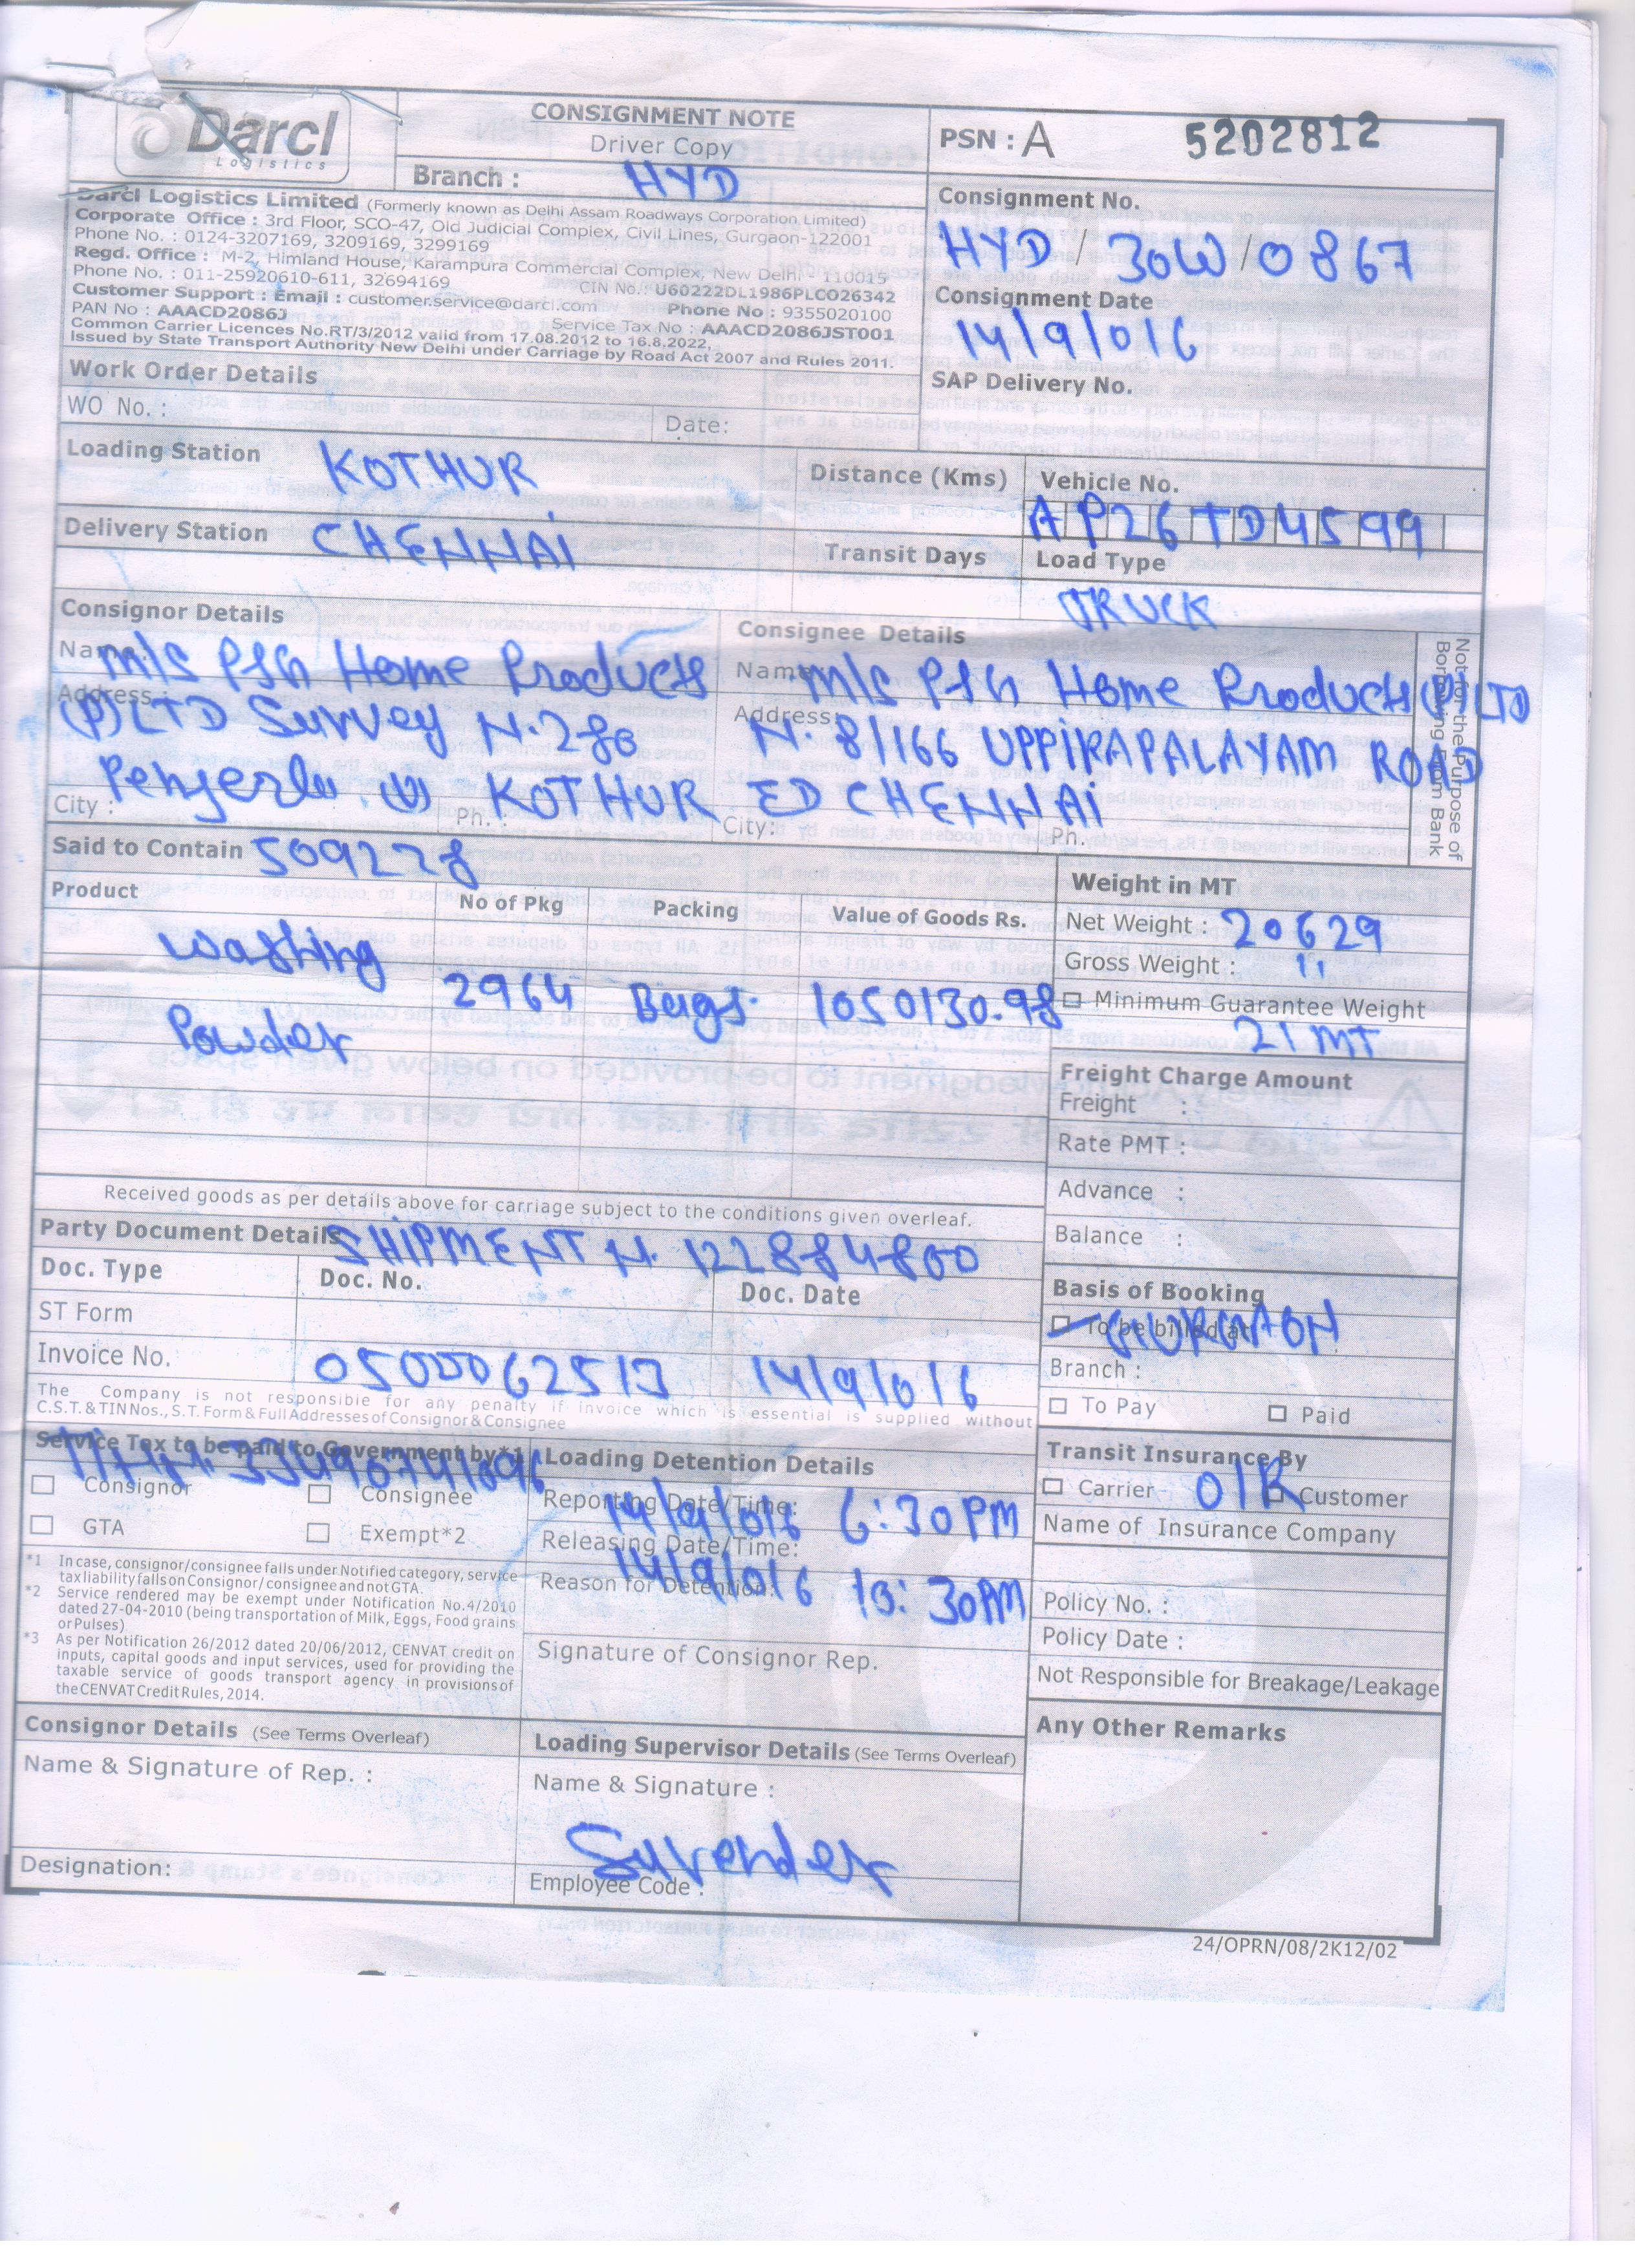 Darcl
Logistics
CONSIGNMENT NOTE
Driver Copy
Branch : HYD
PSN : A 5202812
Darcl Logistics Limited (Formerly known as Delhi Assam Roadways Corporation Limited)
Corporate Office : 3rd Floor, SCO-47, Old Judicial Complex, Civil Lines, Gurgaon-122001
Phone No. : 0124-3207169, 3209169, 3299169
Regd. Office : M-2, Himland House, Karampura Commercial Complex, New Delhi - 110015
Phone No. : 011-25920610-611, 32694169 CIN No.: U60222DL1986PLCO26342
Customer Support : Email : customer.service@darcl.com Phone No : 9355020100
PAN No : AAACD2086J Service Tax No : AAACD2086JST001
Common Carrier Licences No.RT/3/2012 valid from 17.08.2012 to 16.8.2022,
Issued by State Transport Authority New Delhi under Carriage by Road Act 2007 and Rules 2011.
Consignment No.
HYD / 30W / 0867
Consignment Date
14/9/016
SAP Delivery No.
Work Order Details
WO No. : Date:
Loading Station KOTHUR
Distance (Kms)
Vehicle No.
AP26TD4599
Delivery Station CHENNAI
Transit Days
Load Type
TRUCK
Consignor Details
Name: M/S P&G Home Products
Address: (P) LTD Survey N. 280
Penjerla (V) KOTHUR
City : Ph. :
Consignee Details
Name M/S P&G Home Products (P) LTD
Address: N. 8/166 UPPIRAPALAYAM ROAD
ED CHENNAI
City: Ph.
Not for the Purpose of
Borrowing From Bank
Said to Contain 509228
Product No of Pkg Packing Value of Goods Rs.
Washing
Powder 2964 Bags 1050130.98
Weight in MT
Net Weight : 20629
Gross Weight : 11
Minimum Guarantee Weight
21 MT
Freight Charge Amount
Freight :
Rate PMT :
Advance :
Balance :
Received goods as per details above for carriage subject to the conditions given overleaf.
Party Document Details SHIPMENT N. 122884800
Doc. Type Doc. No. Doc. Date
ST Form
Invoice No. 14/9/016
The Company is not responsible for any penalty if invoice which is essential is supplied without
C.S.T. & TIN Nos., S.T. Form & Full Addresses of Consignor & Consignee
Basis of Booking
To be billed at GURGAON
Branch :
To Pay Paid
Service Tax to be paid to Government by*1
Consignor Consignee
GTA Exempt*2
*1 In case, consignor/consignee falls under Notified category, service
tax liability falls on Consignor/consignee and not GTA.
*2 Service rendered may be exempt under Notification No.4/2010
dated 27-04-2010 (being transportation of Milk, Eggs, Food grains
or Pulses)
*3 As per Notification 26/2012 dated 20/06/2012, CENVAT credit on
inputs, capital goods and input services, used for providing the
taxable service of goods transport agency in provisions of
the CENVAT Credit Rules, 2014.
Loading Detention Details
Reporting Date/Time: 14/9/016 6:30PM
Releasing Date/Time:
14/9/016 10:30PM
Reason for Detention:
Signature of Consignor Rep.
Transit Insurance By
Carrier O/R Customer
Name of Insurance Company
Policy No. :
Policy Date :
Not Responsible for Breakage/Leakage
Consignor Details (See Terms Overleaf)
Name & Signature of Rep. :
Designation:
Loading Supervisor Details (See Terms Overleaf)
Name & Signature :
Surender
Employee Code :
Any Other Remarks
24/OPRN/08/2K12/02